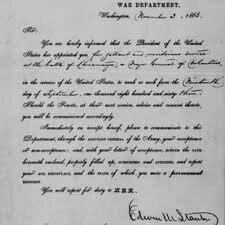 WAR DEPARTMENT,
Washington, November 3, 1863.
Sir:
You are hereby informed that the President of the United
States has appointed you for gallant and meritorious services
at the battle of a Major General of Volunteers
in the service of the United States, to rank as such from the
day of September, one thousand eight hundred and sixty three.
Should the Senate, at their next session, advise and consent thereto,
you will be commissioned accordingly.
Immediately on receipt hereof, please to communicate to this
Department, through the Adjutant General of the Army, your acceptance
or non-acceptance; and with your letter of acceptance, return the oath
herewith enclosed, properly filled up, SUBSCRIBED and ATTESTED, and report
your AGE, BIRTHPLACE, and the STATE of which you were a permanent
RESIDENT.
You will report for duty to
Edwin M. Stanton